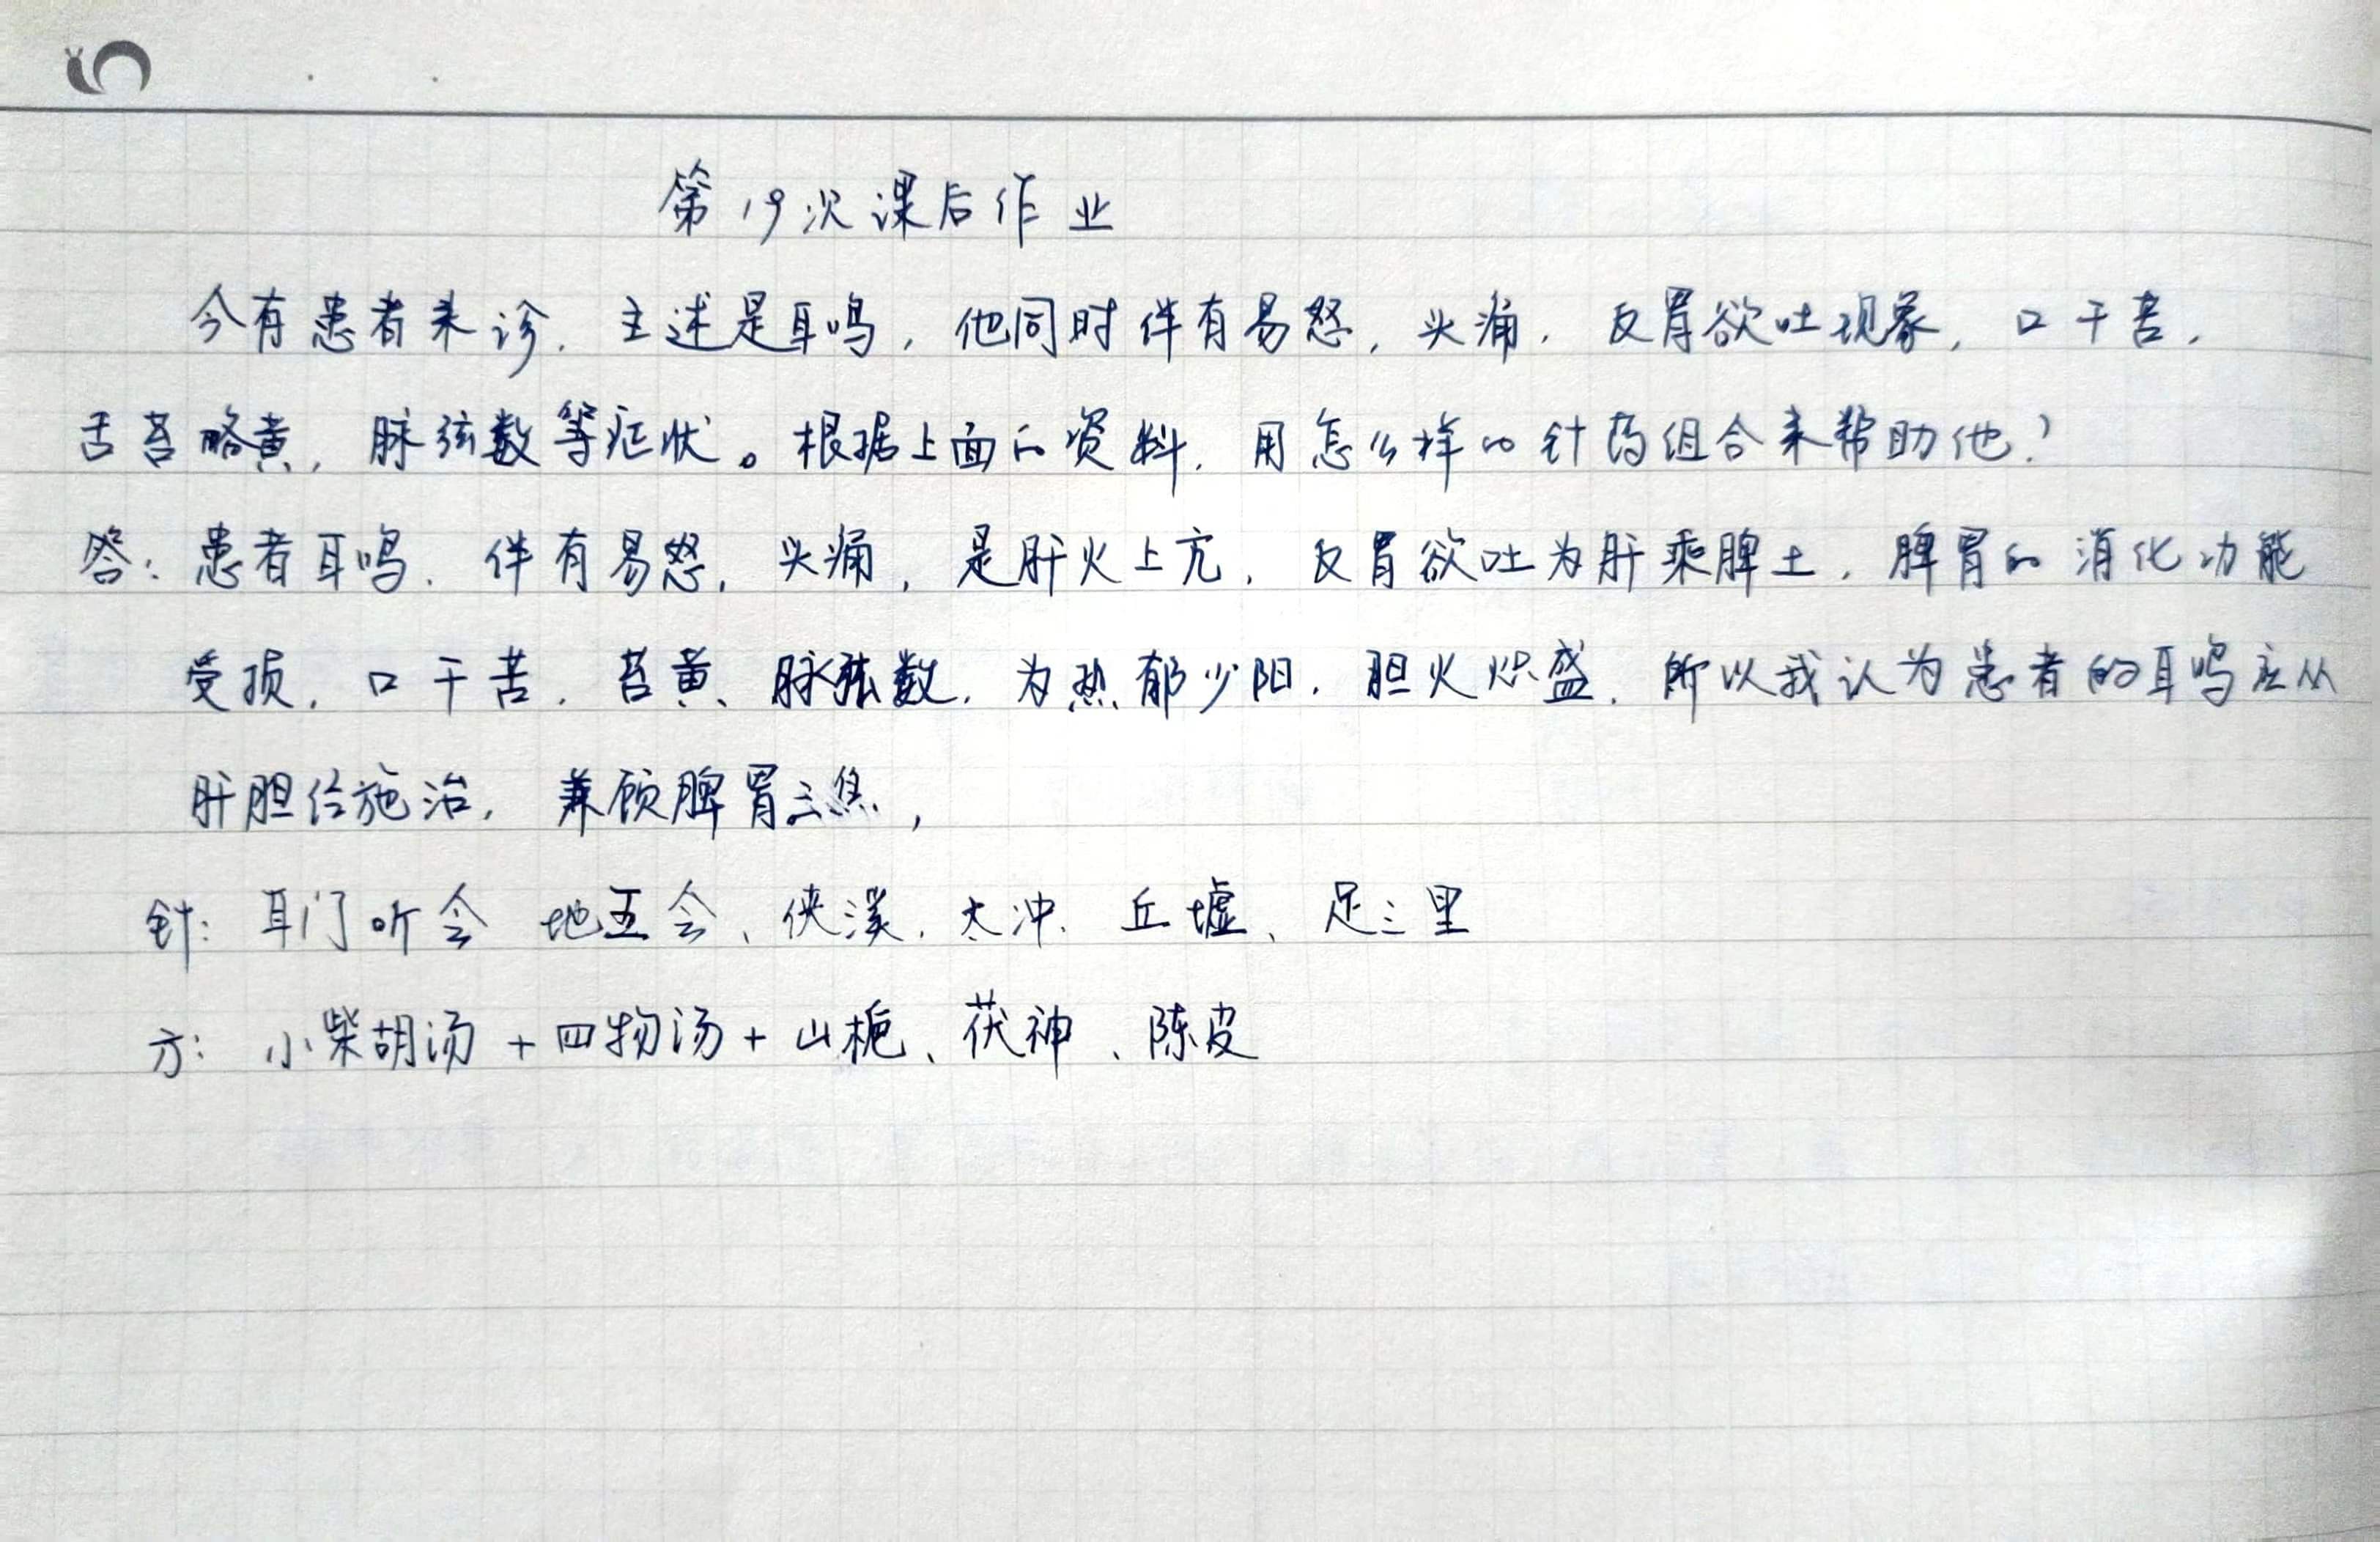 第19次课后作业
今有患者来诊．主述是耳鸣，他同时伴有易怒，头痛．反胃欲吐现象，口干苦，
舌苔略黄，脉弦数等症状。根据上面的资料．用怎么样的针药组合来帮助他？
答：患者耳鸣．伴有易怒，头痛，是肝火上亢，反胃欲吐为肝乘脾土．脾胃的消化功能
受损，口干苦．苔黄、脉弦数．为热郁少阳．胆火炽盛．所以我认为患者的耳鸣应从
肝胆经施治，兼顾脾胃三焦，
针：耳门听会 地五会、侠溪．太冲．丘墟、足三里
方：小柴胡汤＋四物汤＋山栀、茯神、陈皮